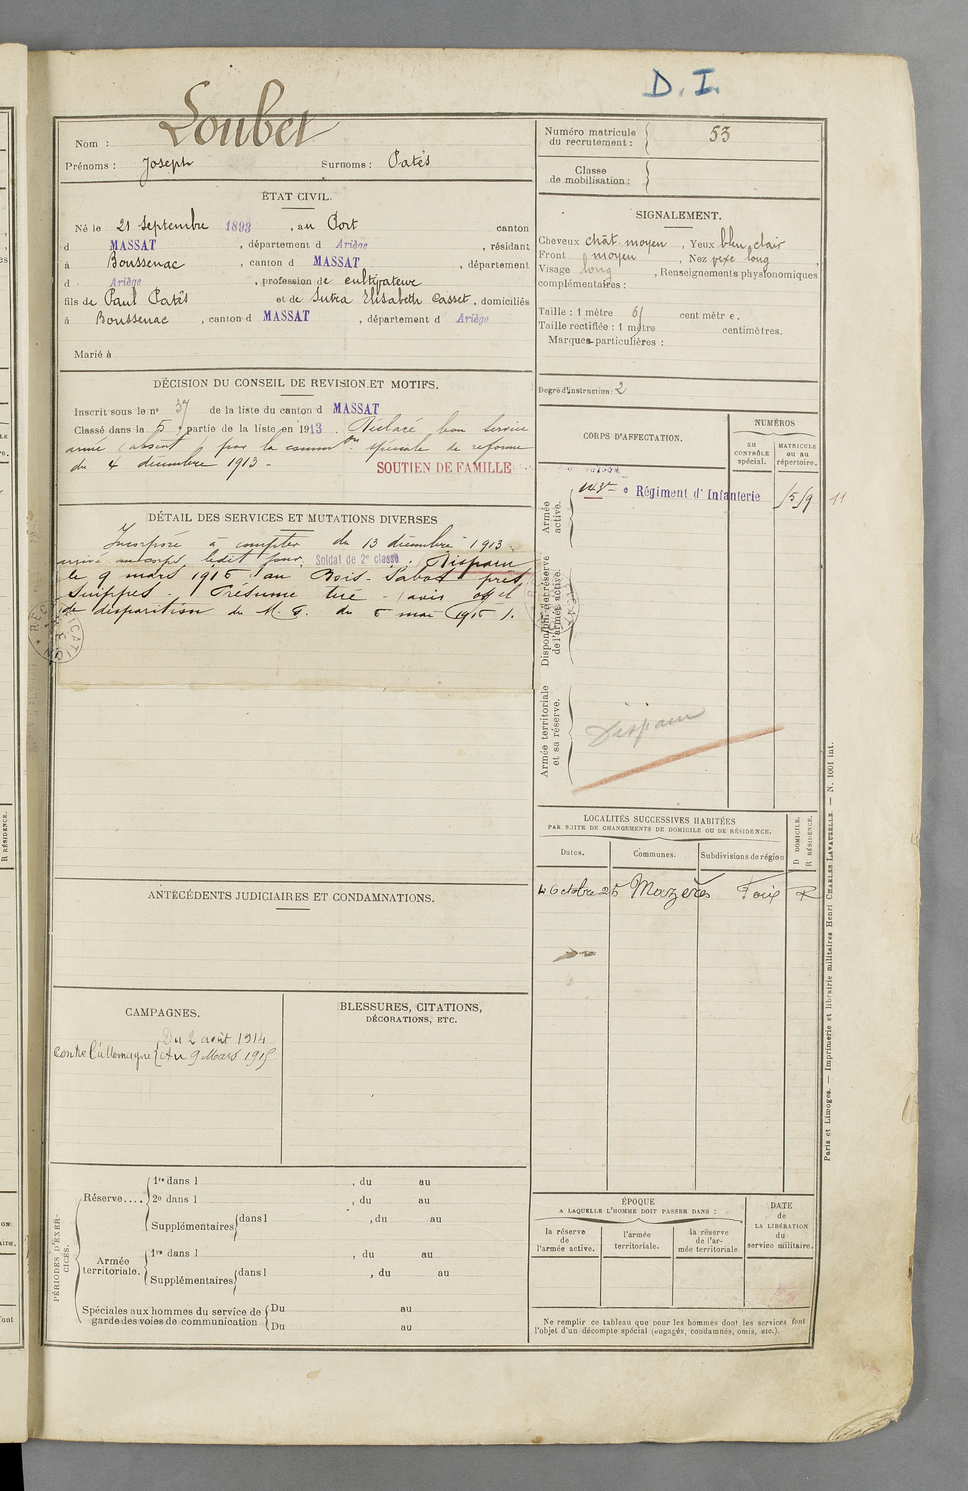 D. I.
Nom : Loubet
Prénoms : Joseph Surnoms : Patès
ÉTAT CIVIL.
Né le 21 Septembre 1893 , au Port canton
d MASSAT , département d Ariège , résidant
à Boussenac , canton d MASSAT , département
d Ariège , profession de cultivateur
fils de Paul Patès et de Sutra Elisabeth Casset , domiciliés
à Boussenac , canton d MASSAT , département d Ariège
Marié à
DÉCISION DU CONSEIL DE REVISION ET MOTIFS.
Inscrit sous le no 37 de la liste du canton d MASSAT
Classé dans la 5 e partie de la liste en 1913 . Déclaré bon service
armé (absent) par la common spéciale de réforme
du 4 décembre 1913 -
SOUTIEN DE FAMILLE
DÉTAIL DES SERVICES ET MUTATIONS DIVERSES
Incorporé à compter du 13 décembre 1913
arrivé au corps ledit jour, Soldat de 2e classe . Disparu
le 9 mars 1915 au Bois-Sabot près
Suippes. Présumé tué - (avis offel
de disparition du M. G. du 6 mai 1915 ).
ANTÉCÉDENTS JUDICIAIRES ET CONDAMNATIONS.
CAMPAGNES.
Du 2 août 1914
Contre l'allemagne { Au 9 Mars 1915
BLESSURES, CITATIONS,
DÉCORATIONS, ETC.
PÉRIODES D'EXERCICES.
Réserve.... 1re dans l , du au
2e dans l , du au
Supplémentaires {dans l , du au
Armée territoriale. 1re dans l , du au
Supplémentaires {dans l , du au
Spéciales aux hommes du service de {Du au
garde des voies de communication {Du au
Numéro matricule
du recrutement : 53
Classe
de mobilisation :
SIGNALEMENT.
Cheveux chât. moyen , Yeux bleu clair
Front moyen , Nez vexe long
Visage long , Renseignements physionomiques
complémentaires :
Taille : 1 mètre 61 centimètre.
Taille rectifiée : 1 mètre centimètres.
Marques particulières :
Degré d'instruction : 2
CORPS D'AFFECTATION.
NUMÉROS
au
CONTRÔLE
spécial.
MATRICULE
ou au
répertoire.
Armée
active.
143e Régiment d'Infanterie
1519
11
Disponibilité et réserve
de l'armée active.
Armée territoriale
et sa réserve.
Disparu
LOCALITÉS SUCCESSIVES HABITÉES
PAR SUITE DE CHANGEMENTS DE DOMICILE OU DE RÉSIDENCE.
Dates. Communes. Subdivisions de région
D DOMICILE.
R RÉSIDENCE.
4 Octobre 25 Mazères Foix R
ÉPOQUE
A LAQUELLE L'HOMME DOIT PASSER DANS :
la réserve
de
l'armée active.
l'armée
territoriale.
la réserve
de l'ar-
mée territoriale
DATE
de
LA LIBÉRATION
du
service militaire.
Ne remplir ce tableau que pour les hommes dont les services font
l'objet d'un décompte spécial (engagés, condamnés, omis, etc.).
Paris et Limoges. — Imprimerie et librairie militaires Henri CHARLES-LAVAUZELLE. — N. 1001 int.
R RÉSIDENCE.